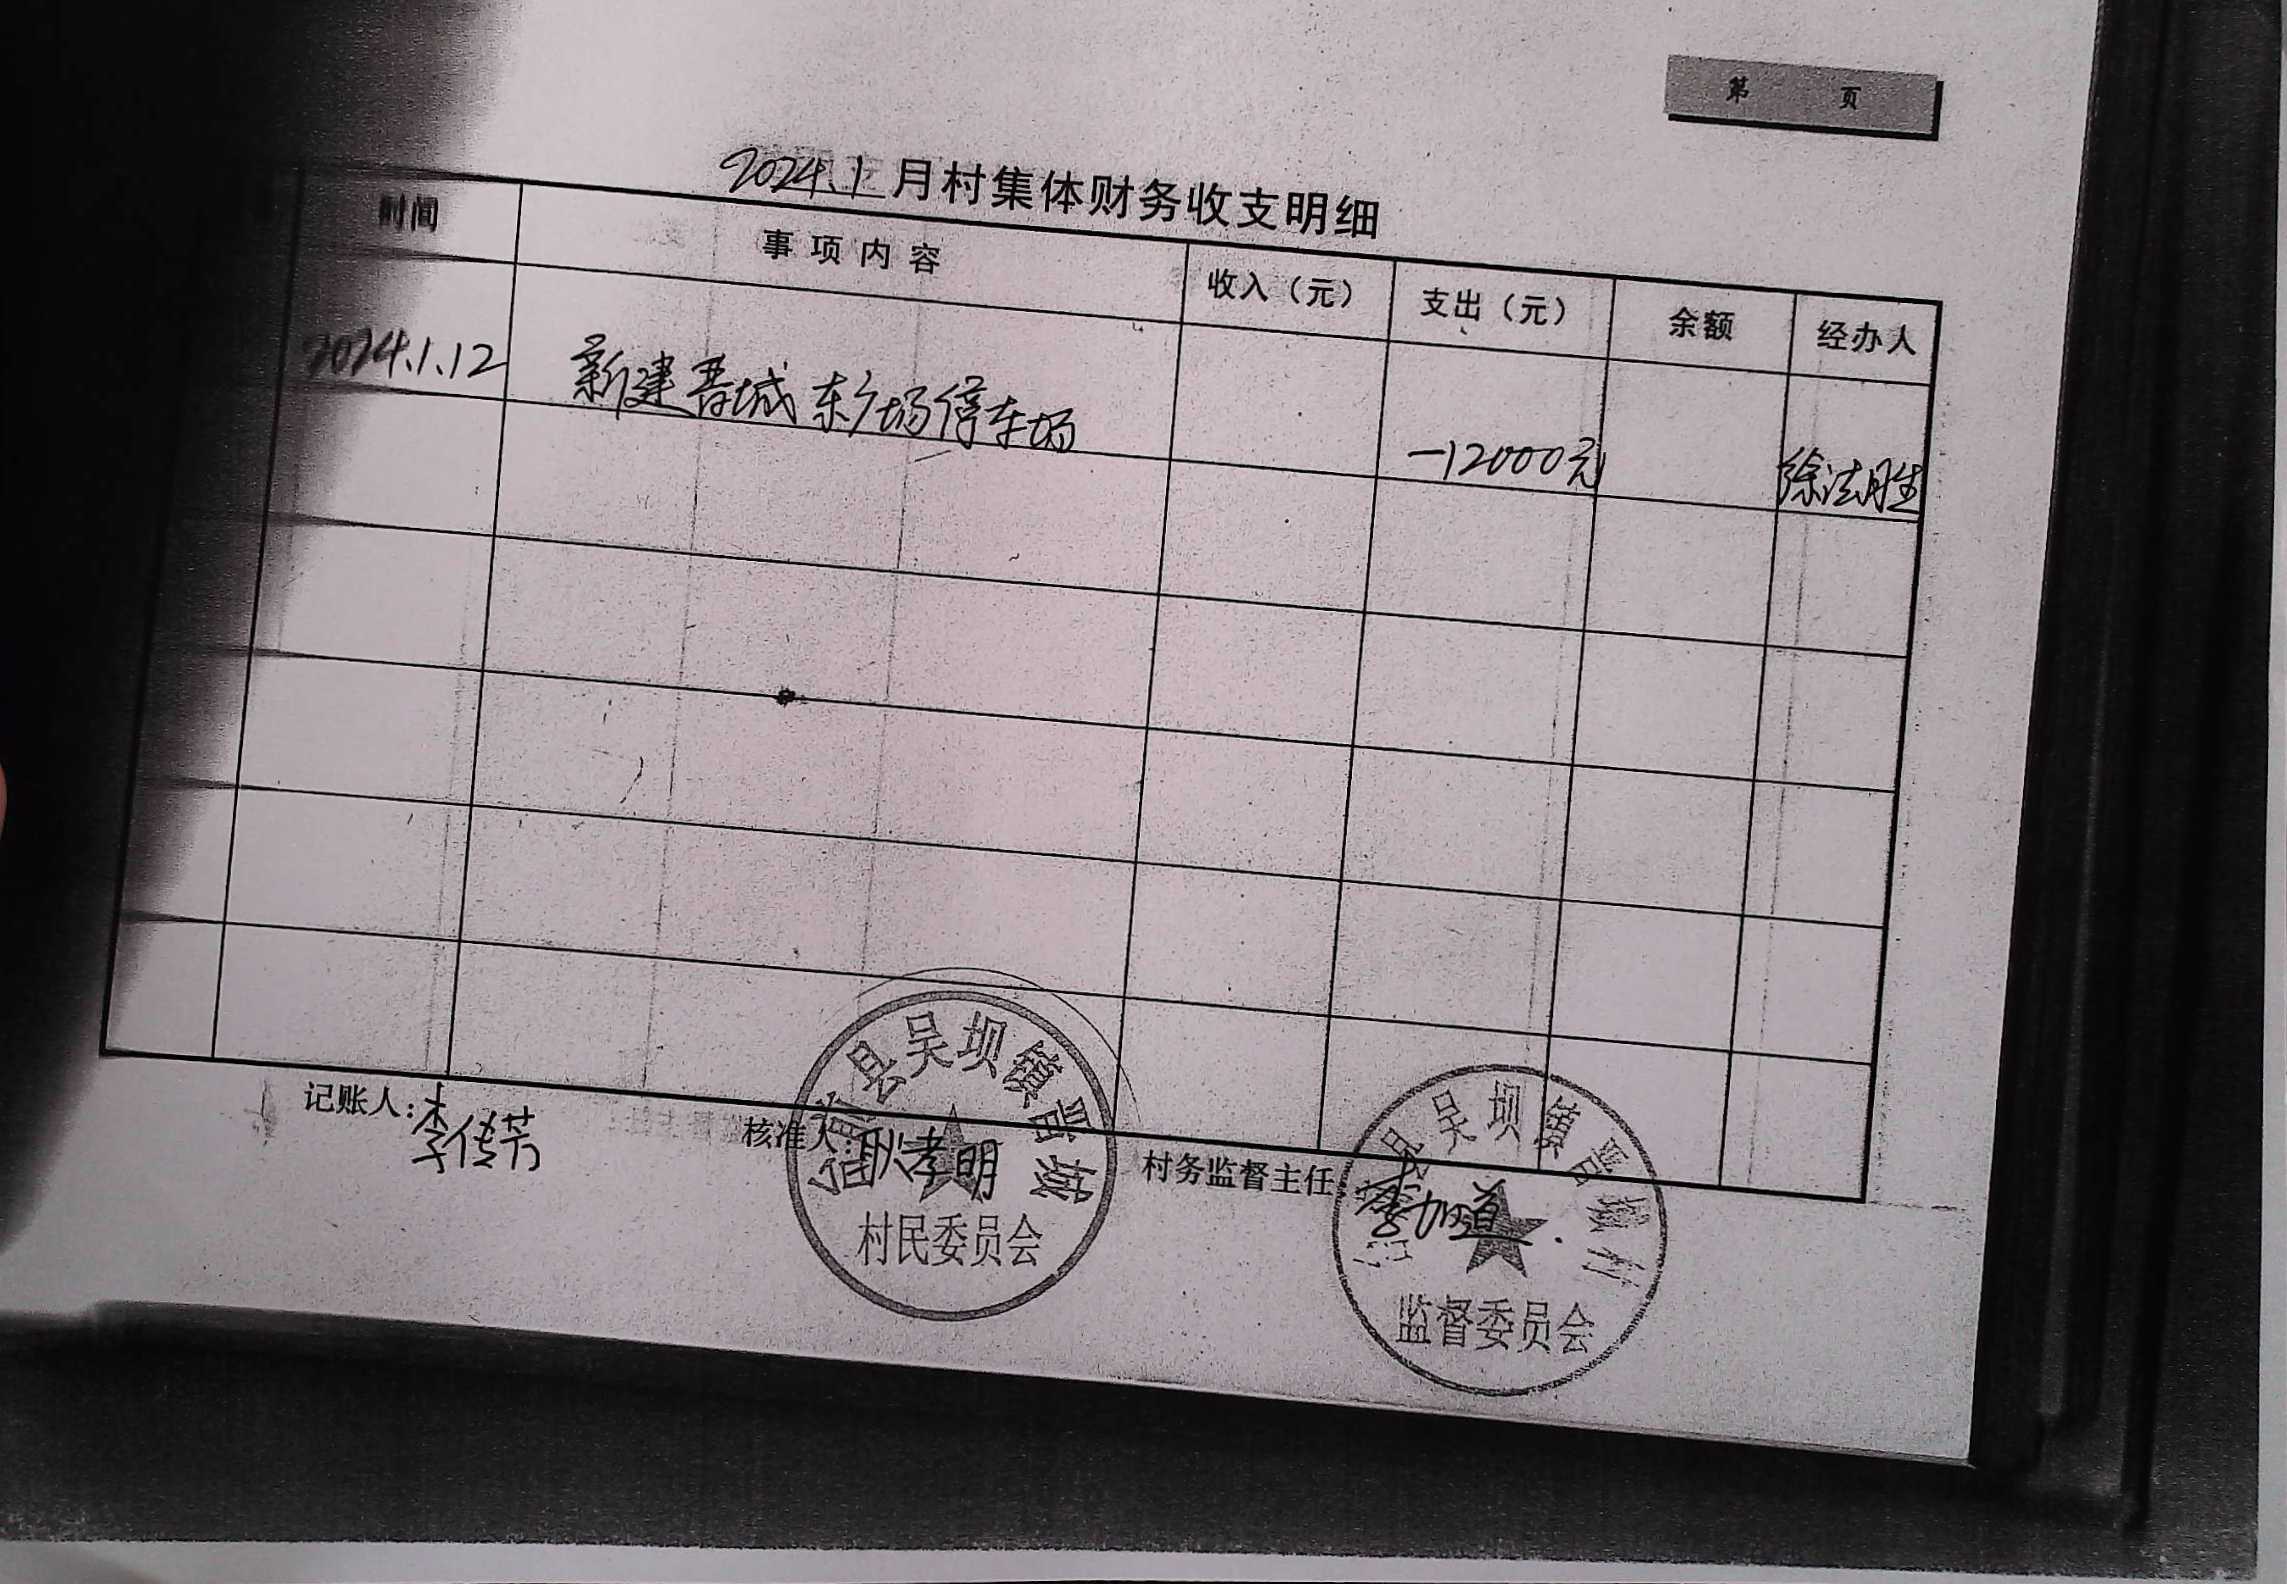 第 页
2024.1 月村集体财务收支明细
时间 事项内容 收入（元） 支出（元） 余额 经办人
2024.1.12 新建晋城东广场停车场 -12000元 徐法胜
记账人：李传芳 核准人 耿孝明 村务监督主任 李加道
县吴坝镇晋城
村民委员会
县吴坝镇晋城村
监督委员会